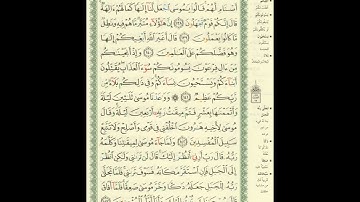 أَصْنَامٍ لَّهُمْ قَالُوا يَٰمُوسَى ٱجْعَل لَّنَآ إِلَٰهًا كَمَا لَهُمْ ءَالِهَةٌ
قَالَ إِنَّكُمْ قَوْمٌ تَجْهَلُونَ ١٣٨ إِنَّ هَٰٓؤُلَآءِ مُتَبَّرٌ مَّا هُمْ فِيهِ وَبَٰطِلٌ
مَّا كَانُوا يَعْمَلُونَ ١٣٩ قَالَ أَغَيْرَ ٱللَّهِ أَبْغِيكُمْ إِلَٰهًا
وَهُوَ فَضَّلَكُمْ عَلَى ٱلْعَٰلَمِينَ ١٤٠ وَإِذْ أَنجَيْنَٰكُم
مِّنْ ءَالِ فِرْعَوْنَ يَسُومُونَكُمْ سُوٓءَ ٱلْعَذَابِ يُقَتِّلُونَ
أَبْنَآءَكُمْ وَيَسْتَحْيُونَ نِسَآءَكُمْ وَفِى ذَٰلِكُم بَلَآءٌ مِّن
رَّبِّكُمْ عَظِيمٌ ١٤١ وَوَٰعَدْنَا مُوسَىٰ ثَلَٰثِينَ لَيْلَةً
وَأَتْمَمْنَٰهَا بِعَشْرٍ فَتَمَّ مِيقَٰتُ رَبِّهِۦٓ أَرْبَعِينَ لَيْلَةً وَقَالَ
مُوسَىٰ لِأَخِيهِ هَٰرُونَ ٱخْلُفْنِى فِى قَوْمِى وَأَصْلِحْ وَلَا تَتَّبِعْ
سَبِيلَ ٱلْمُفْسِدِينَ ١٤٢ وَلَمَّا جَآءَ مُوسَىٰ لِمِيقَٰتِنَا وَكَلَّمَهُۥ
رَبُّهُۥ قَالَ رَبِّ أَرِنِىٓ أَنظُرْ إِلَيْكَ قَالَ لَن تَرَىٰنِى وَلَٰكِنِ ٱنظُرْ
إِلَى ٱلْجَبَلِ فَإِنِ ٱسْتَقَرَّ مَكَانَهُۥ فَسَوْفَ تَرَىٰنِى فَلَمَّا تَجَلَّىٰ
رَبُّهُۥ لِلْجَبَلِ جَعَلَهُۥ دَكًّا وَخَرَّ مُوسَىٰ صَعِقًا فَلَمَّآ أَفَاقَ